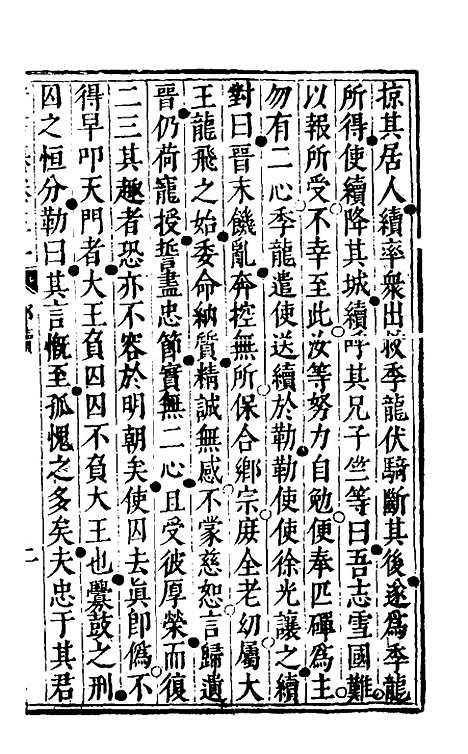 掠其居人續率衆出救季龍伏騎斷其後遂爲季龍
所得使續降其城續呼其兄子竺等曰吾志雪國難
以報所受不幸至此汝等努力自勉便奉匹磾爲主
勿有二心季龍遣使送續於勒勒使使徐光讓之續
對曰晉末饑亂奔控無所保合鄉宗庶全老幼屬大
王龍飛之始委命納質精誠無感不蒙慈恕言歸遺
晉仍荷寵授誓盡忠節實無二心且受彼厚榮而復
二三其趣者恐亦不容於明朝矣使囚去眞即僞不
得早叩天門者大王負囚囚不負大王也釁鼓之刑
囚之恒分勒曰其言慨至孤愧之多矣夫忠于其君
二